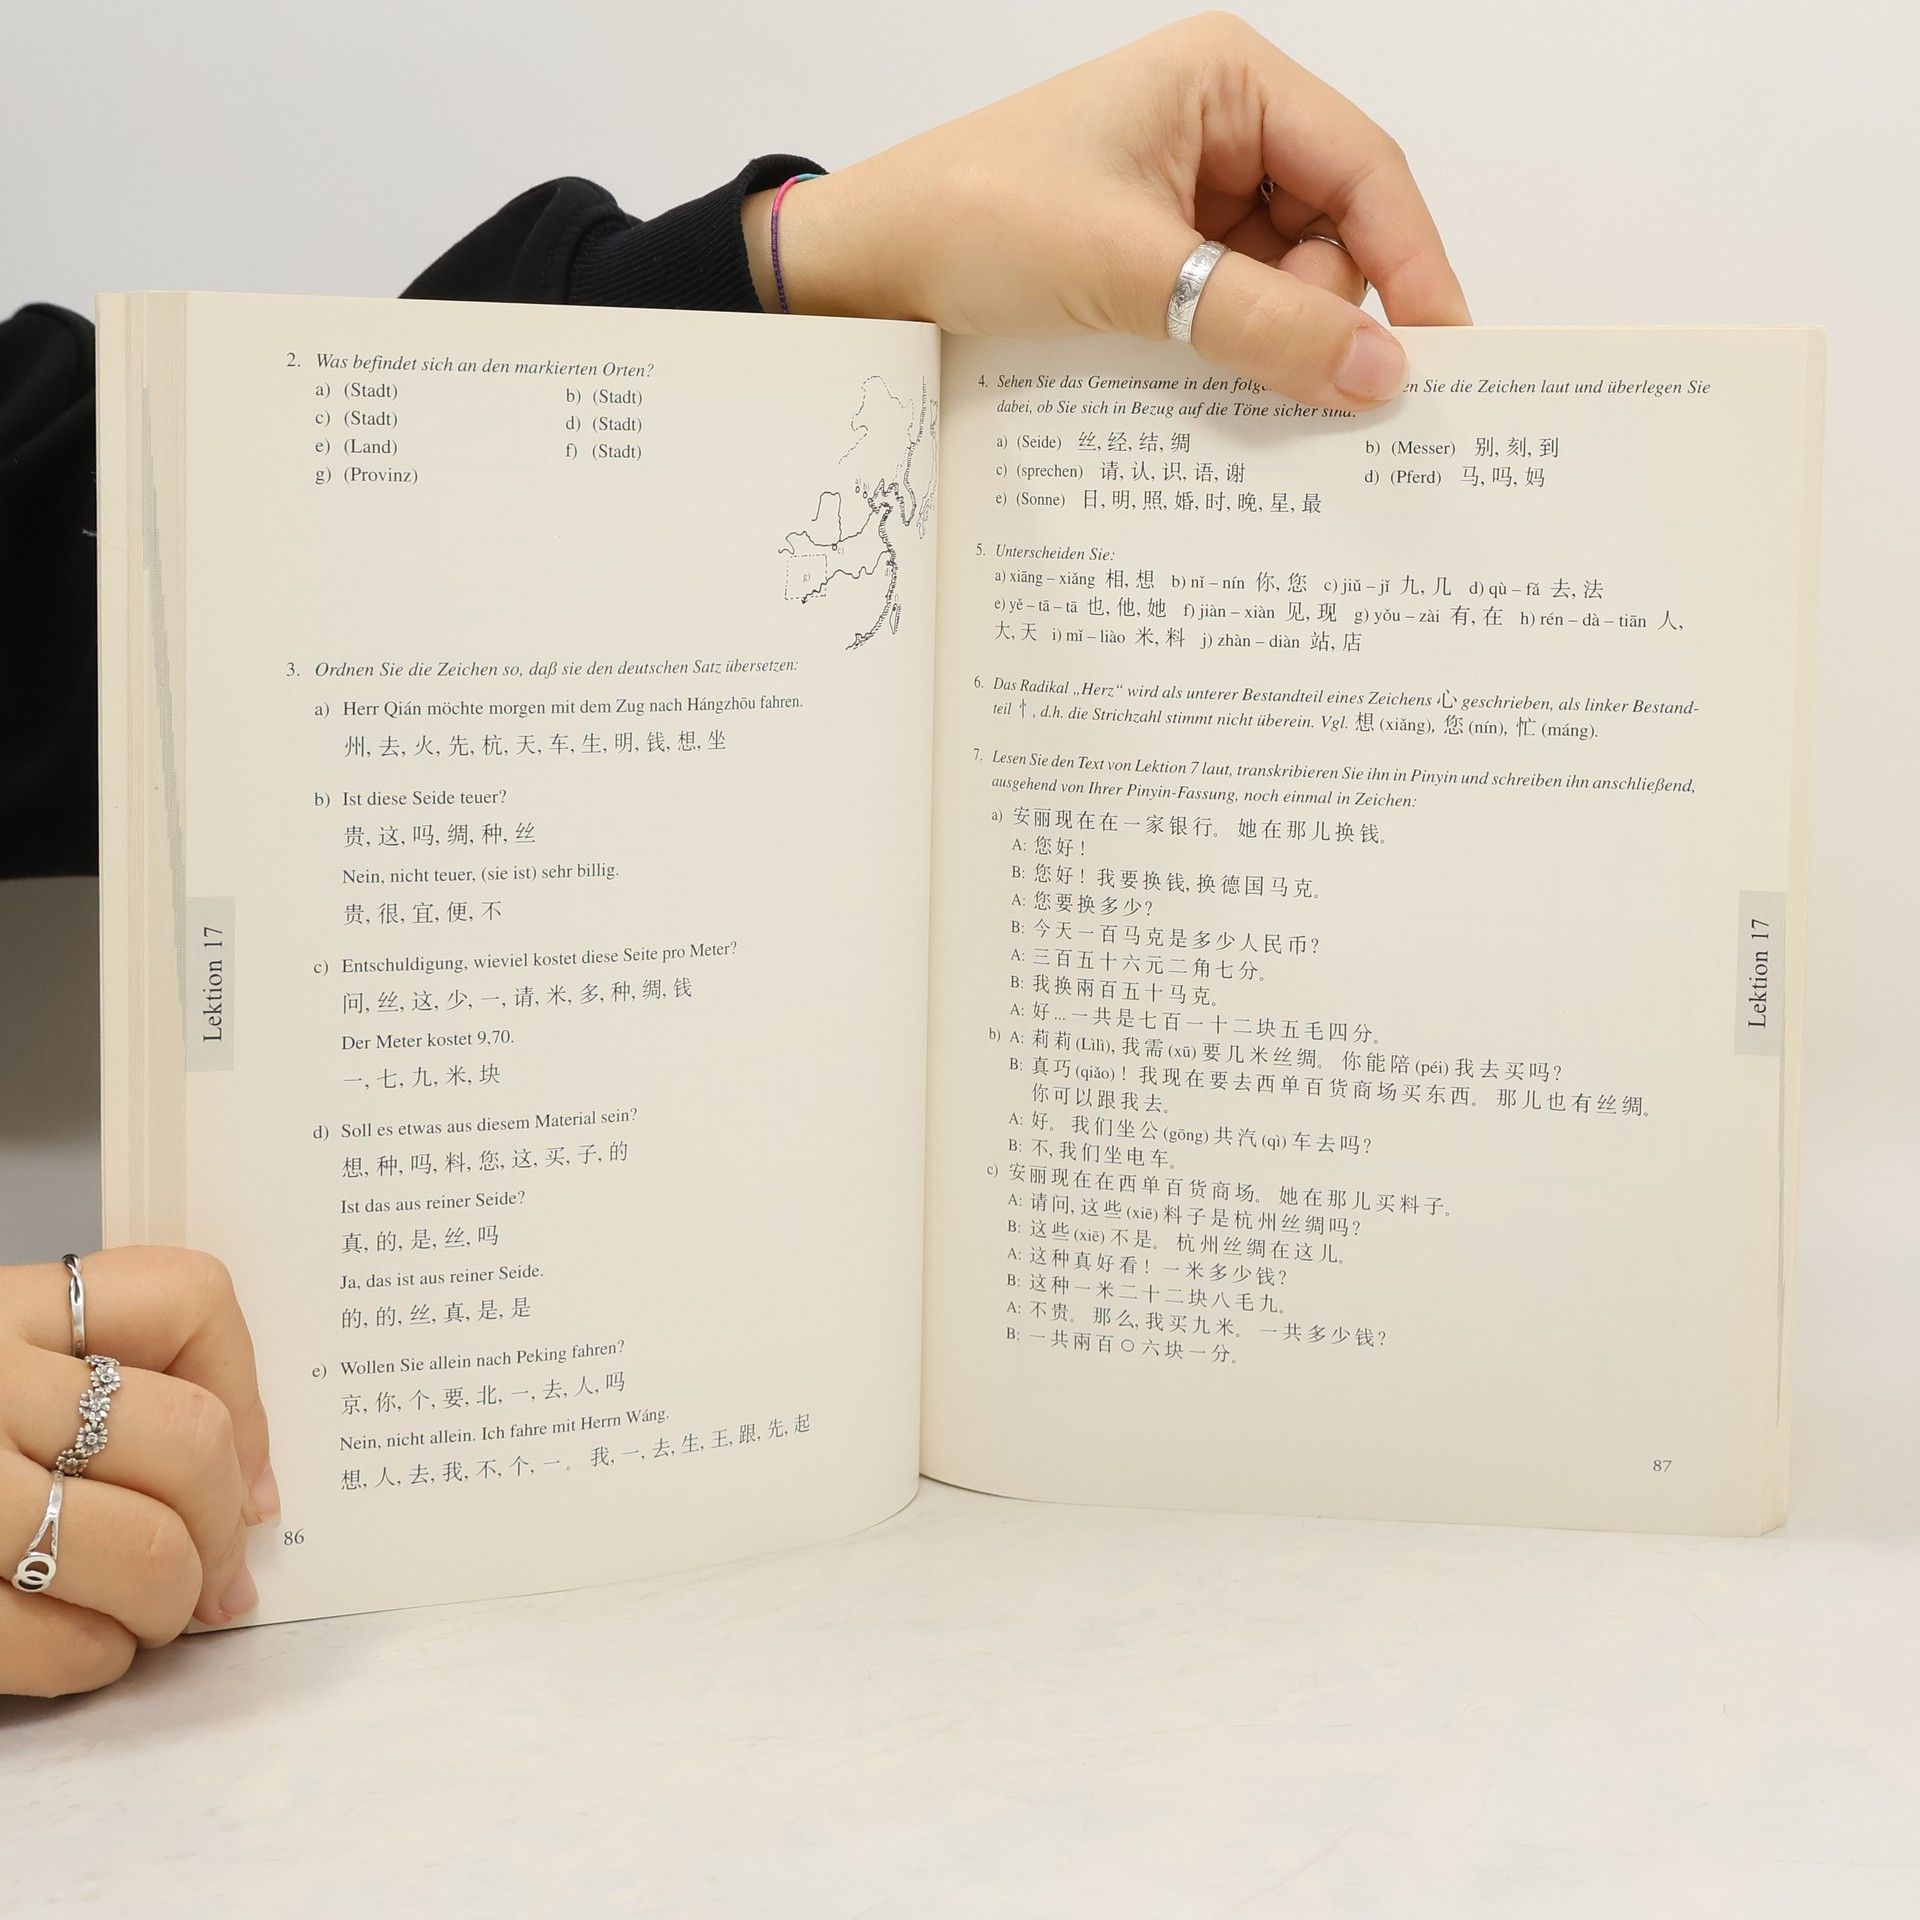 2. Was befindet sich an den markierten Orten?
a) (Stadt) b) (Stadt)
c) (Stadt) d) (Stadt)
e) (Land) f) (Stadt)
g) (Provinz)
3. Ordnen Sie die Zeichen so, daß sie den deutschen Satz übersetzen:
a) Herr Qián möchte morgen mit dem Zug nach Hángzhōu fahren.
州, 去, 火, 先, 杭, 天, 车, 生, 明, 钱, 想, 坐
b) Ist diese Seide teuer?
贵, 这, 吗, 绸, 种, 丝
Nein, nicht teuer, (sie ist) sehr billig.
贵, 很, 宜, 便, 不
c) Entschuldigung, wieviel kostet diese Seite pro Meter?
问, 丝, 这, 少, 一, 请, 米, 多, 种, 绸, 钱
Der Meter kostet 9,70.
一, 七, 九, 米, 块
d) Soll es etwas aus diesem Material sein?
想, 种, 吗, 料, 您, 这, 买, 子, 的
Ist das aus reiner Seide?
真, 的, 是, 丝, 吗
Ja, das ist aus reiner Seide.
的, 的, 丝, 真, 是, 是
e) Wollen Sie allein nach Peking fahren?
京, 你, 个, 要, 北, 一, 去, 人, 吗
Nein, nicht allein. Ich fahre mit Herrn Wáng.
想, 人, 去, 我, 不, 个, 一。 我, 一, 去, 生, 王, 跟, 先, 起
Lektion 17
86
4. Sehen Sie das Gemeinsame in den Sie die Zeichen laut und überlegen Sie
dabei, ob Sie sich in Bezug auf die Töne sicher sind.
a) (Seide) 丝, 经, 结, 绸 b) (Messer) 别, 刻, 到
c) (sprechen) 请, 认, 识, 语, 谢 d) (Pferd) 马, 吗, 妈
e) (Sonne) 日, 明, 照, 婚, 时, 晚, 星, 最
5. Unterscheiden Sie:
a) xiāng – xiǎng 相, 想 b) nǐ – nín 你, 您 c) jiǔ – jǐ 九, 几 d) qù – fǎ 去, 法
e) yě – tā – tā 也, 他, 她 f) jiàn – xiàn 见, 现 g) yǒu – zài 有, 在 h) rén – dà – tiān 人,
大, 天 i) mǐ – liào 米, 料 j) zhàn – diàn 站, 店
6. Das Radikal „Herz“ wird als unterer Bestandteil eines Zeichens 心 geschrieben, als linker Bestand-
teil 忄, d.h. die Strichzahl stimmt nicht überein. Vgl. 想 (xiǎng), 您 (nín), 忙 (máng).
7. Lesen Sie den Text von Lektion 7 laut, transkribieren Sie ihn in Pinyin und schreiben ihn anschließend,
ausgehend von Ihrer Pinyin-Fassung, noch einmal in Zeichen:
a) 安丽现在在一家银行。 她在那儿换钱。
A: 您好!
B: 您好! 我要换钱, 换德国马克。
A: 您要换多少?
B: 今天一百马克是多少人民币?
A: 三百五十六元二角七分。
B: 我换兩百五十马克。
A: 好... 一共是七百一十二块五毛四分。
b) A: 莉莉 (Lìlì), 我需 (xū) 要几米丝绸。 你能陪 (péi) 我去买吗?
B: 真巧 (qiǎo) ! 我现在要去西单百货商场买东西。 那儿也有丝绸。
你可以跟我去。
A: 好。 我们坐公 (gōng) 共汽 (qì) 车去吗?
B: 不, 我们坐电车。
c) 安丽现在在西单百货商场。 她在那儿买料子。
A: 请问, 这些 (xiē) 料子是杭州丝绸吗?
B: 这些 (xiē) 不是。 杭州丝绸在这儿。
A: 这种真好看! 一米多少钱?
B: 这种一米二十二块八毛九。
A: 不贵。 那么, 我买九米。 一共多少钱?
B: 一共兩百〇六块一分。
Lektion 17
87